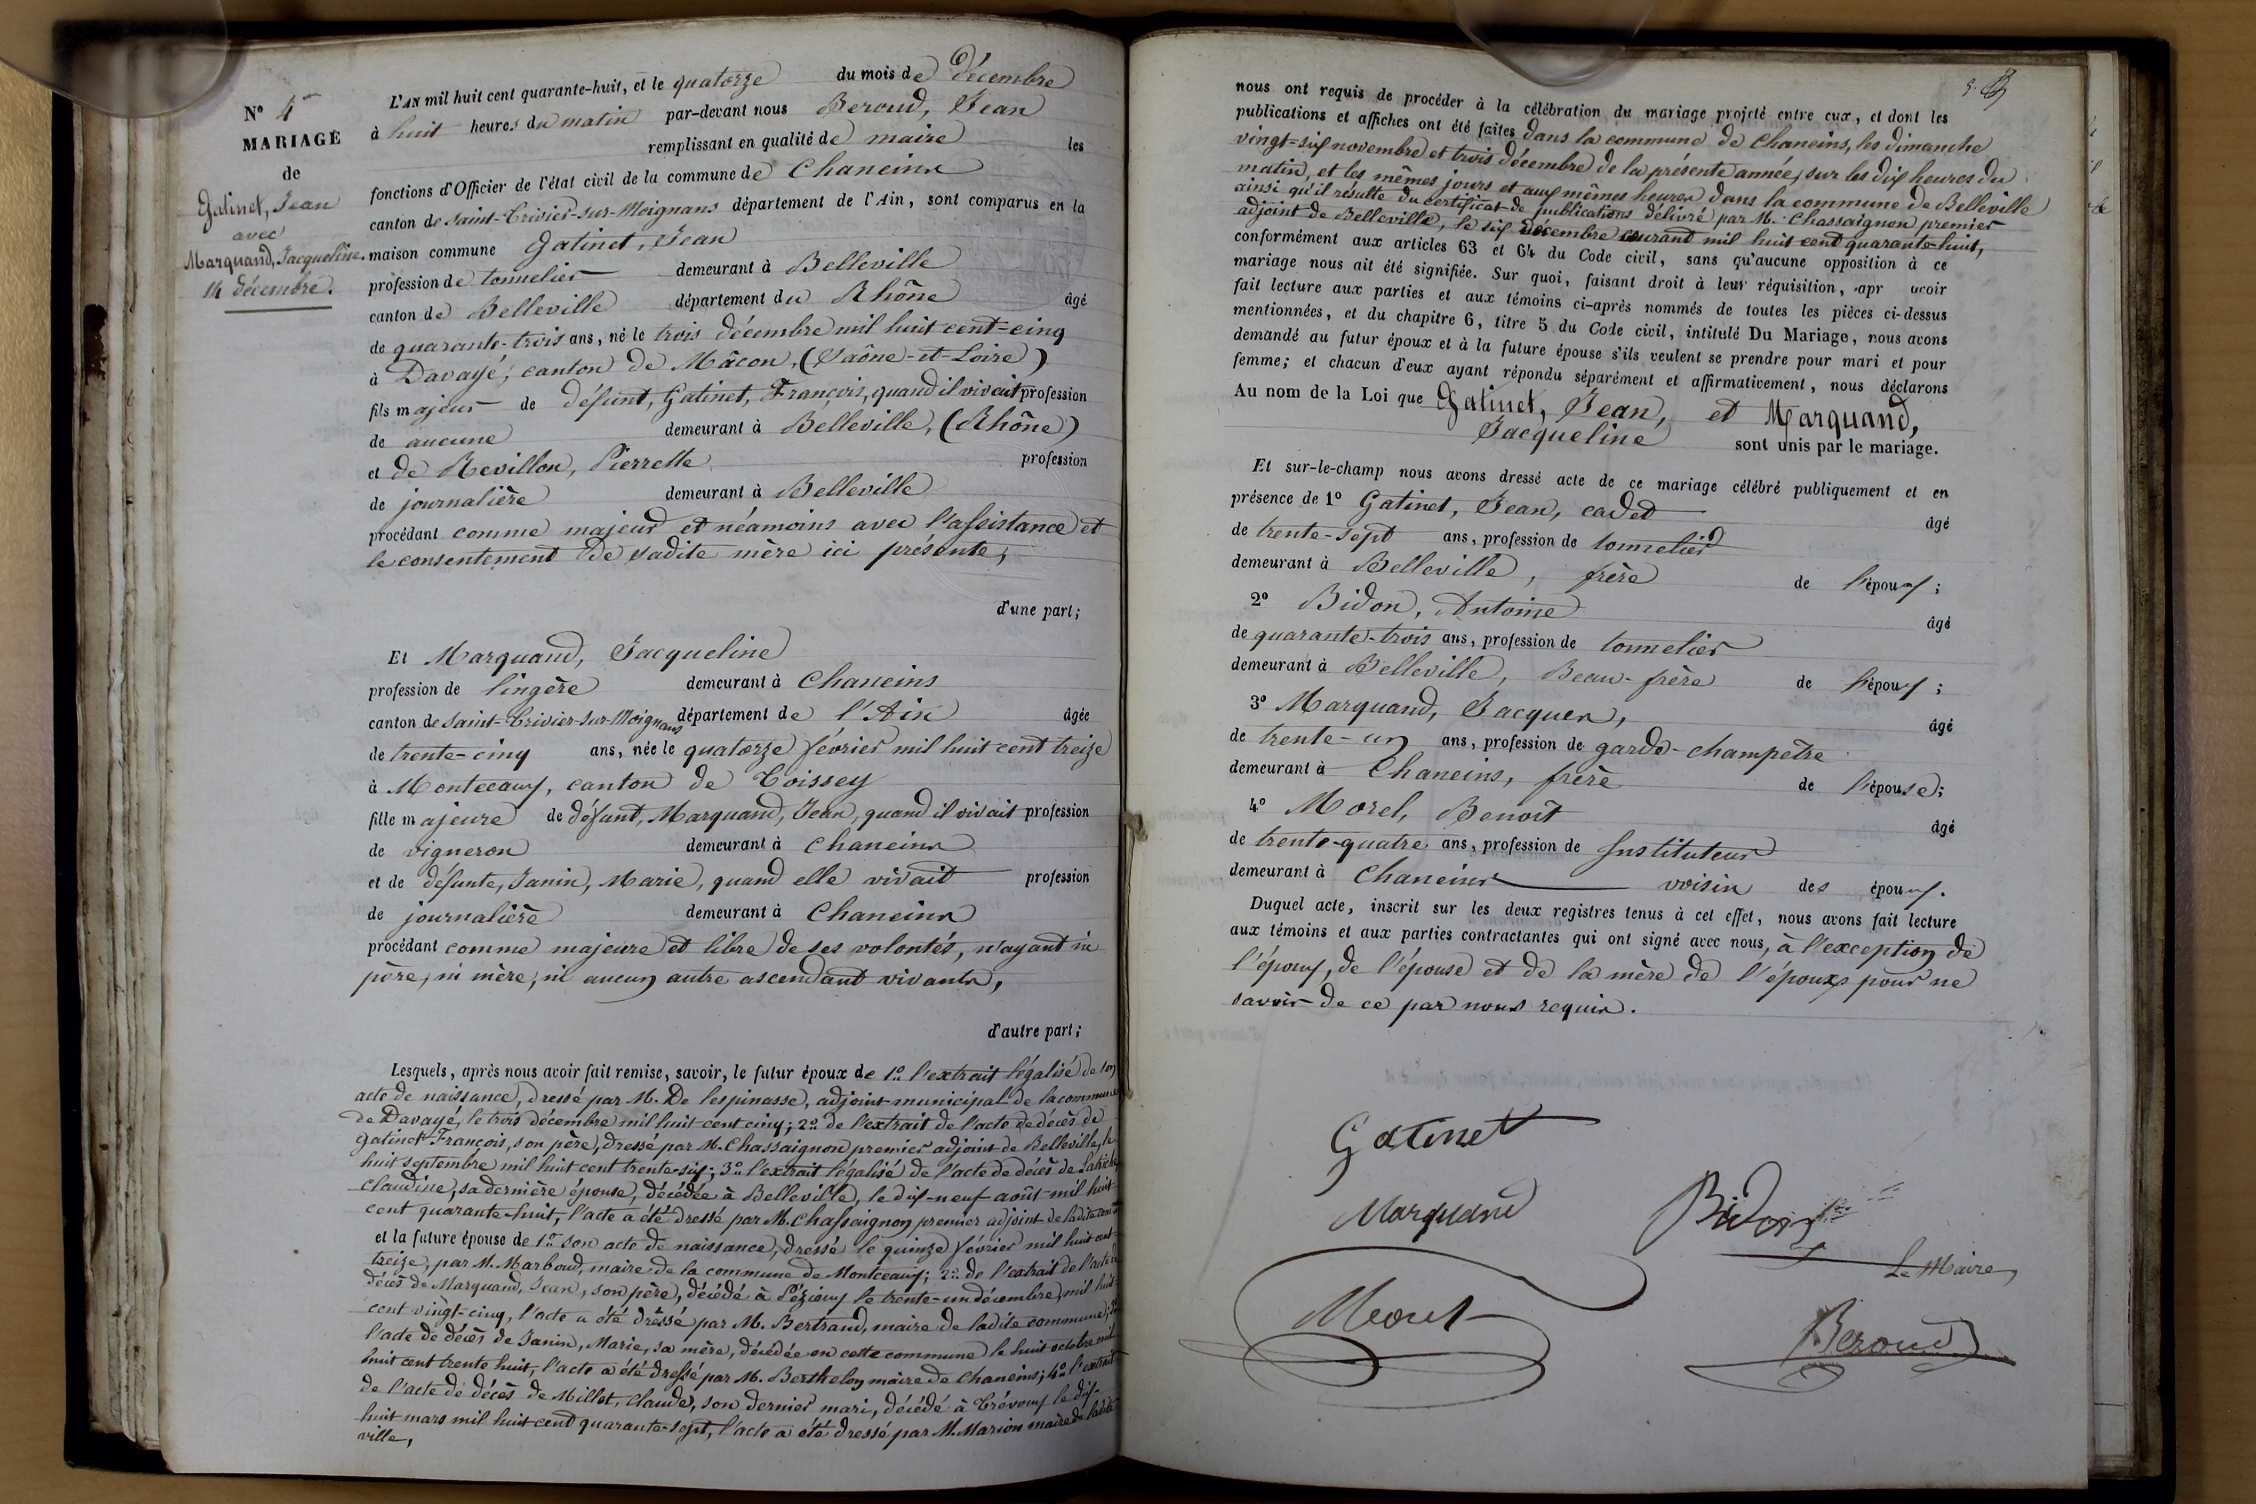 N° 4
MARIAGE
de
Gatinet, Jean
avec
Marquand, Jacqueline.
14 décembre.
L'AN mil huit cent quarante-huit, et le quatorze du mois de décembre
à huit heures du matin par-devant nous Beroud, Jean
remplissant en qualité de maire les
fonctions d'Officier de l'état civil de la commune de Chaneins
canton de Saint-Trivier-sur-Moignans département de l'Ain, sont comparus en la
maison commune Gatinet, Jean
profession de tonnelier demeurant à Belleville
canton de Belleville département du Rhône âgé
de quarante-trois ans, né le trois décembre mil huit cent-cinq
à Davayé, canton de Mâcon, (Saône-et-Loire)
fils majeur de défunt, Gatinet, François, quand il vivait profession
de aucune demeurant à Belleville, (Rhône)
et de Revillon, Pierrette profession
de journalière demeurant à Belleville
procédant comme majeur et néamoins avec l'assistance et
le consentement de sadite mère ici présente,
d'une part;
Et Marquand, Jacqueline
profession de lingère demeurant à Chaneins
canton de Saint-Trivier-sur-Moignans département de l'Ain âgée
de trente-cinq ans, née le quatorze février mil huit cent treize
à Montceaux, canton de Toissey
fille majeure de défunt, Marquand, Jean, quand il vivait profession
de vigneron demeurant à Chaneins
et de défunte, Janin, Marie, quand elle vivait profession
de journalière demeurant à Chaneins
procédant comme majeure et libre de ses volontés, n'ayant ni
père, ni mère, ni aucun autre ascendant vivants,
d'autre part;
Lesquels, après nous avoir fait remise, savoir, le futur époux de 1° l'extrait légalisé de son
acte de naissance, dressé par M. De lespinasse, adjoint municipal de la commune
de Davayé, le trois décembre mil huit cent cinq; 2° de l'extrait de l'acte de décès de
Gatinet François, son père, dressé par M. Chassaignon premier adjoint de Belleville, le
huit septembre mil huit cent trente-six; 3° l'extrait légalisé de l'acte de décès de
Claudine, sa dernière épouse, décédée à Belleville, le dix-neuf août mil huit
cent quarante-huit, l'acte a été dressé par M. Chassaignon premier adjoint de ladite
et la future épouse de 1° son acte de naissance, dressé le quinze février mil huit cent
treize, par M. Marboud, maire de la commune de Montceaux; 2° de l'extrait de l'acte de
décès de Marquand, Jean, son père, décédé à Pézieux le trente-un décembre mil huit
cent vingt-cinq, l'acte a été dressé par M. Bertrand, maire de ladite commune; 3°
l'acte de décès de Janin, Marie, sa mère, décédée en cette commune le huit octobre mil
huit cent trente huit, l'acte a été dressé par M. Berthelon maire de Chaneins; 4° l'extrait
de l'acte de décès de Millet, Claude, son dernier mari, décédé à Trévoux le dix-
huit mars mil huit cent quarante-sept, l'acte a été dressé par M. Marion maire de ladite
ville,
nous ont requis de procéder à la célébration du mariage projeté entre eux, et dont les
publications et affiches ont été faites dans la commune de Chaneins, les dimanche
vingt-six novembre et trois décembre de la présente année, sur les dix heures du
matin, et les mêmes jours et aux mêmes heures dans la commune de Belleville
ainsi qu'il résulte du certificat de publications délivré par M. Chassaignon premier
adjoint de Belleville, le six décembre courant mil huit cent quarante-huit,
conformément aux articles 63 et 64 du Code civil, sans qu'aucune opposition à ce
mariage nous ait été signifiée. Sur quoi, faisant droit à leur réquisition, apr avoir
fait lecture aux parties et aux témoins ci-après nommés de toutes les pièces ci-dessus
mentionnées, et du chapitre 6, titre 5 du Code civil, intitulé Du Mariage, nous avons
demandé au futur époux et à la future épouse s'ils veulent se prendre pour mari et pour
femme; et chacun d'eux ayant répondu séparément et affirmativement, nous déclarons
Au nom de la Loi que Gatinet, Jean, et Marquand,
Jacqueline sont unis par le mariage.
Et sur-le-champ nous avons dressé acte de ce mariage célébré publiquement et en
présence de 1° Gatinet, Jean, cadet âgé
de trente-sept ans, profession de tonnelier
demeurant à Belleville, frère de l'époux;
2° Bidon, Antoine âgé
de quarante-trois ans, profession de tonnelier
demeurant à Belleville, Beau-frère de l'époux;
3° Marquand, Jacques, âgé
de trente-un ans, profession de garde-champetre
demeurant à Chaneins, frère de l'épouse;
4° Morel, Benoît âgé
de trente-quatre ans, profession de Instituteur
demeurant à Chaneins voisin des époux.
Duquel acte, inscrit sur les deux registres tenus à cet effet, nous avons fait lecture
aux témoins et aux parties contractantes qui ont signé avec nous, à l'exception de
l'époux, de l'épouse et de la mère de l'époux pour ne
savoir de ce par nous requis.
Gatinet
Marquand Bidon
Le Maire,
Morel Beroud